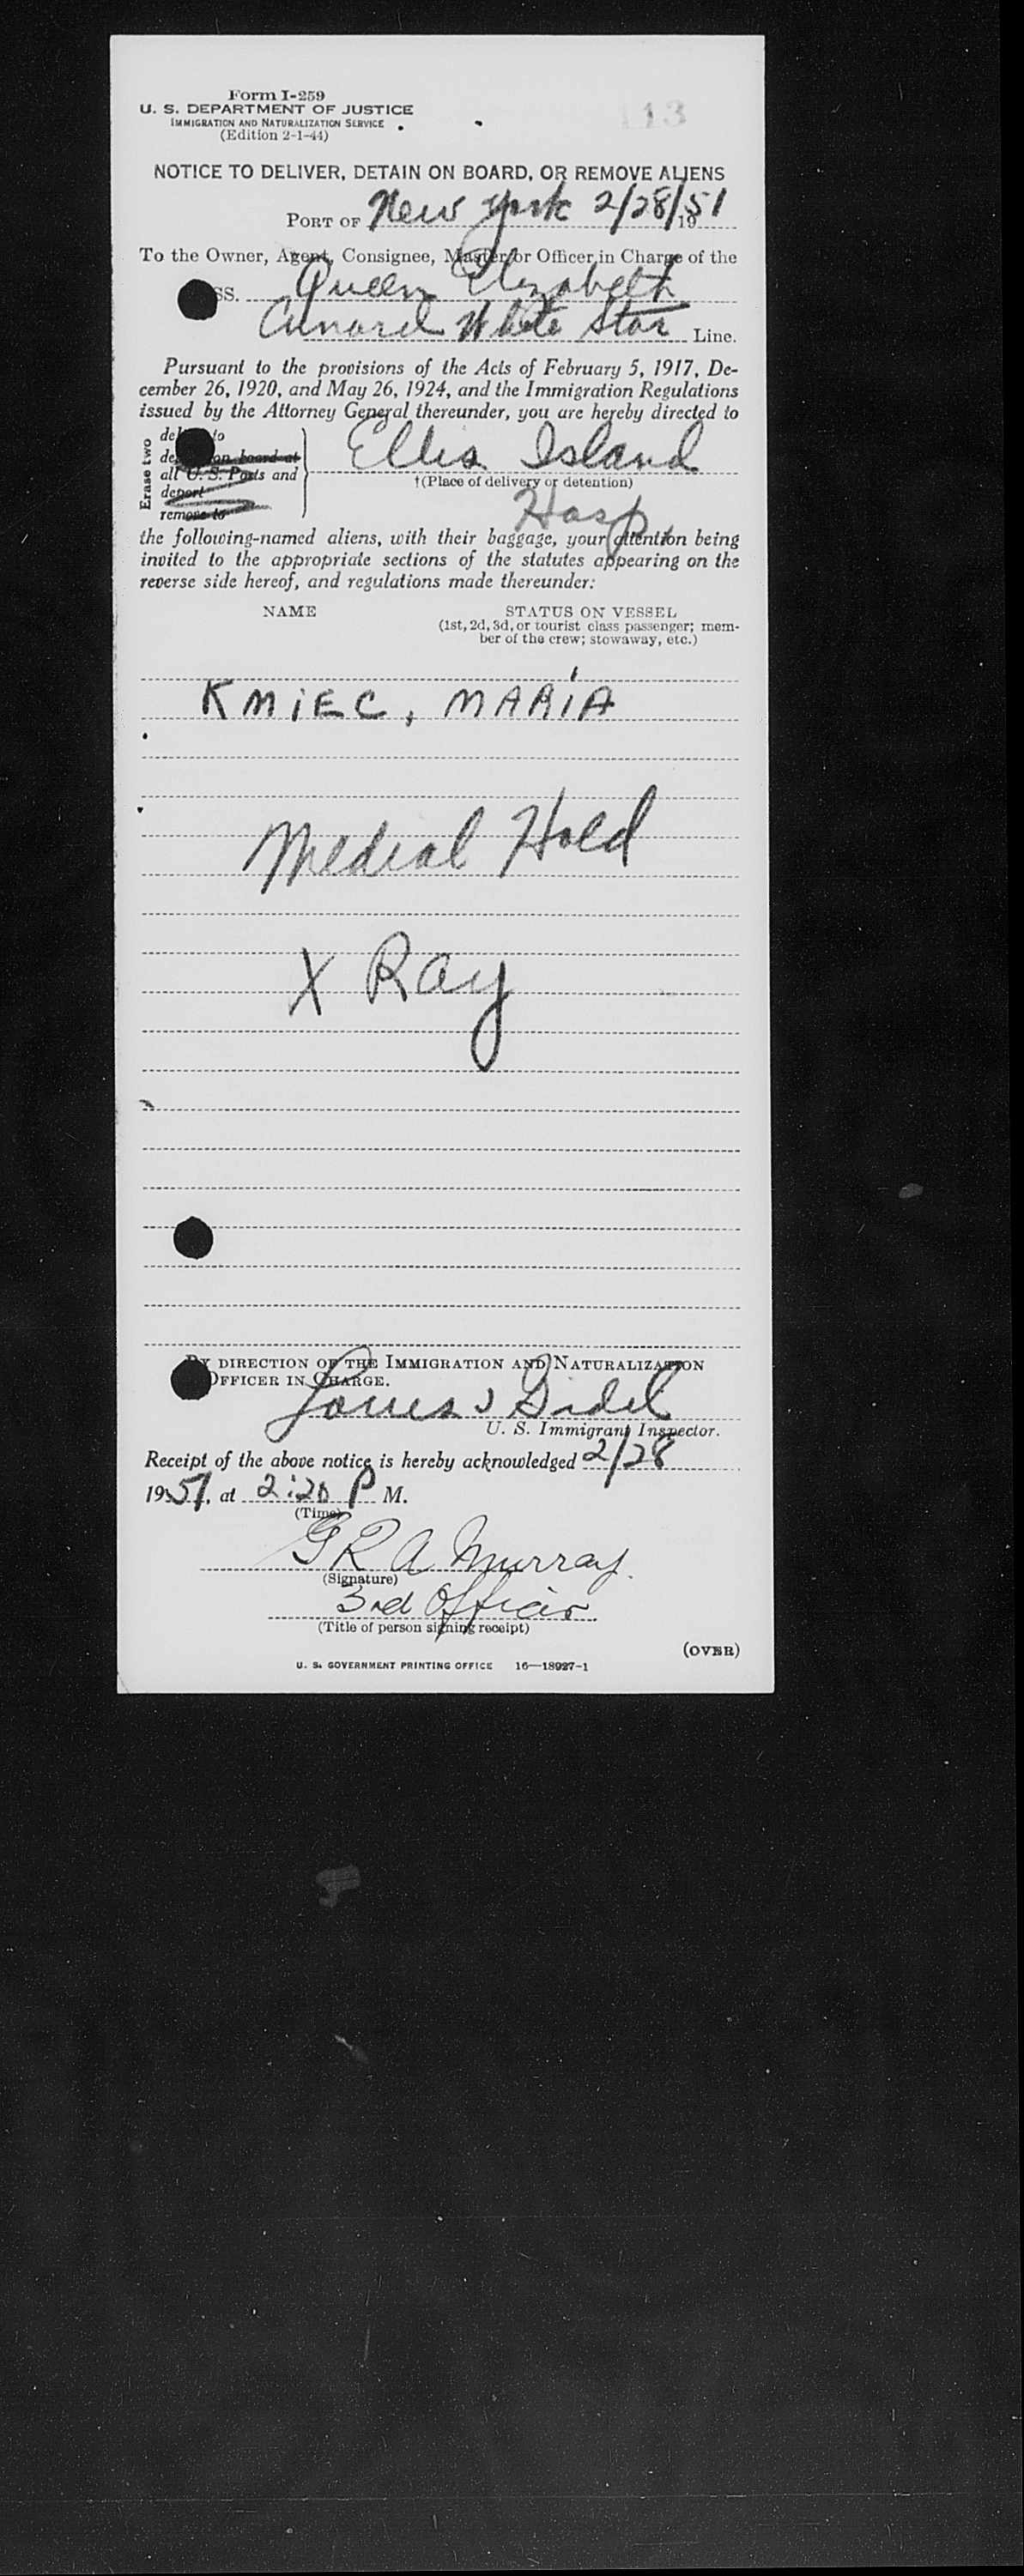 Form I-259
U. S. DEPARTMENT OF JUSTICE
IMMIGRATION AND NATURALIZATION SERVICE
(Edition 2-1-44)
113
NOTICE TO DELIVER, DETAIN ON BOARD, OR REMOVE ALIENS
PORT OF New York 2/28/1951
To the Owner, Agent, Consignee, Master or Officer in Charge of the
SS. Queen Elizabeth
Cunard White Star Line.
Pursuant to the provisions of the Acts of February 5, 1917, De-
cember 26, 1920, and May 26, 1924, and the Immigration Regulations
issued by the Attorney General thereunder, you are hereby directed to
Erase two
to
on board at
all U. S. Ports and
deport
remove to
Ellis Island
†(Place of delivery or detention)
Hosp.
the following-named aliens, with their baggage, your attention being
invited to the appropriate sections of the statutes appearing on the
reverse side hereof, and regulations made thereunder:
NAME
STATUS ON VESSEL
(1st, 2d, 3d, or tourist class passenger; mem-
ber of the crew; stowaway, etc.)
KMIEC, MARIA
Medial Hold
X Ray
BY DIRECTION OF THE IMMIGRATION AND NATURALIZATION
OFFICER IN CHARGE.
U. S. Immigrant Inspector.
Receipt of the above notice is hereby acknowledged 2/28
1951, at 2:20 P M.
(Time)
G R A Murray
(Signature)
3rd Officer
(Title of person signing receipt)
(OVER)
U. S. GOVERNMENT PRINTING OFFICE 16—18927-1